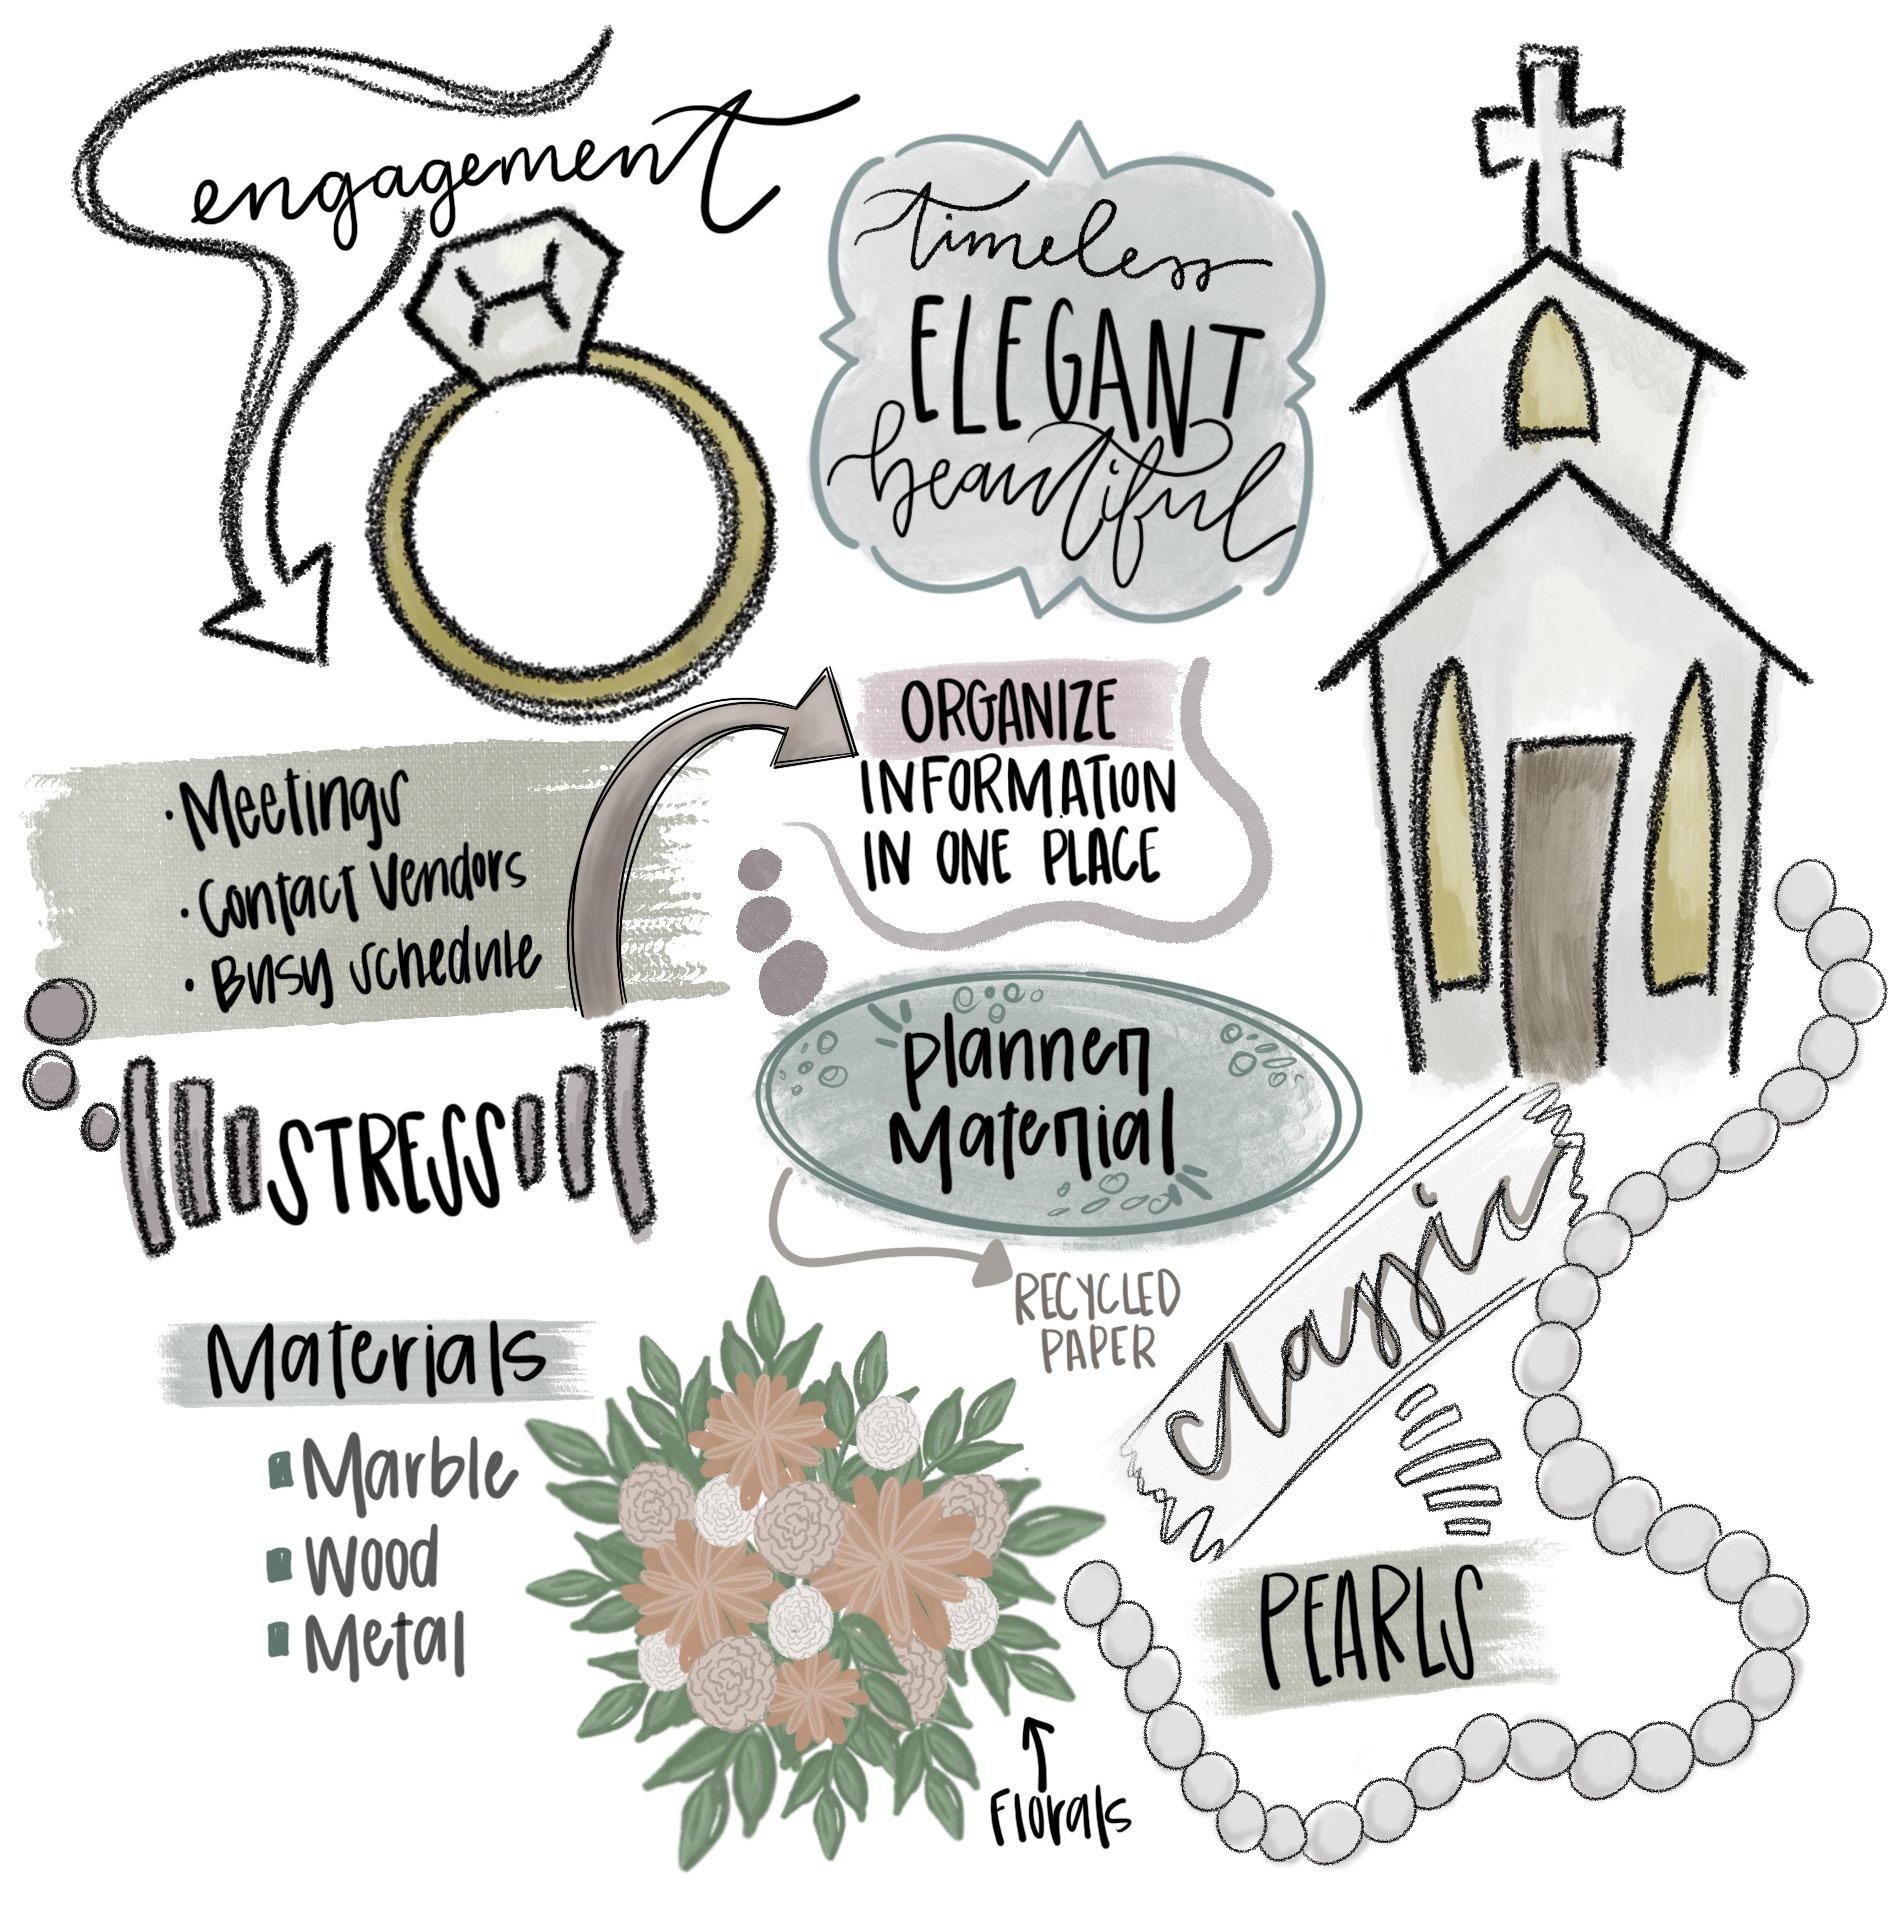 engagement
timeless
ELEGANT
beautiful
ORGANIZE
INFORMATION
IN ONE PLACE
· Meetings
· Contact Vendors
· Busy Schedule
STRESS
Planner
Material
RECYCLED
PAPER
classic
PEARLS
Materials
Marble
Wood
Metal
Florals